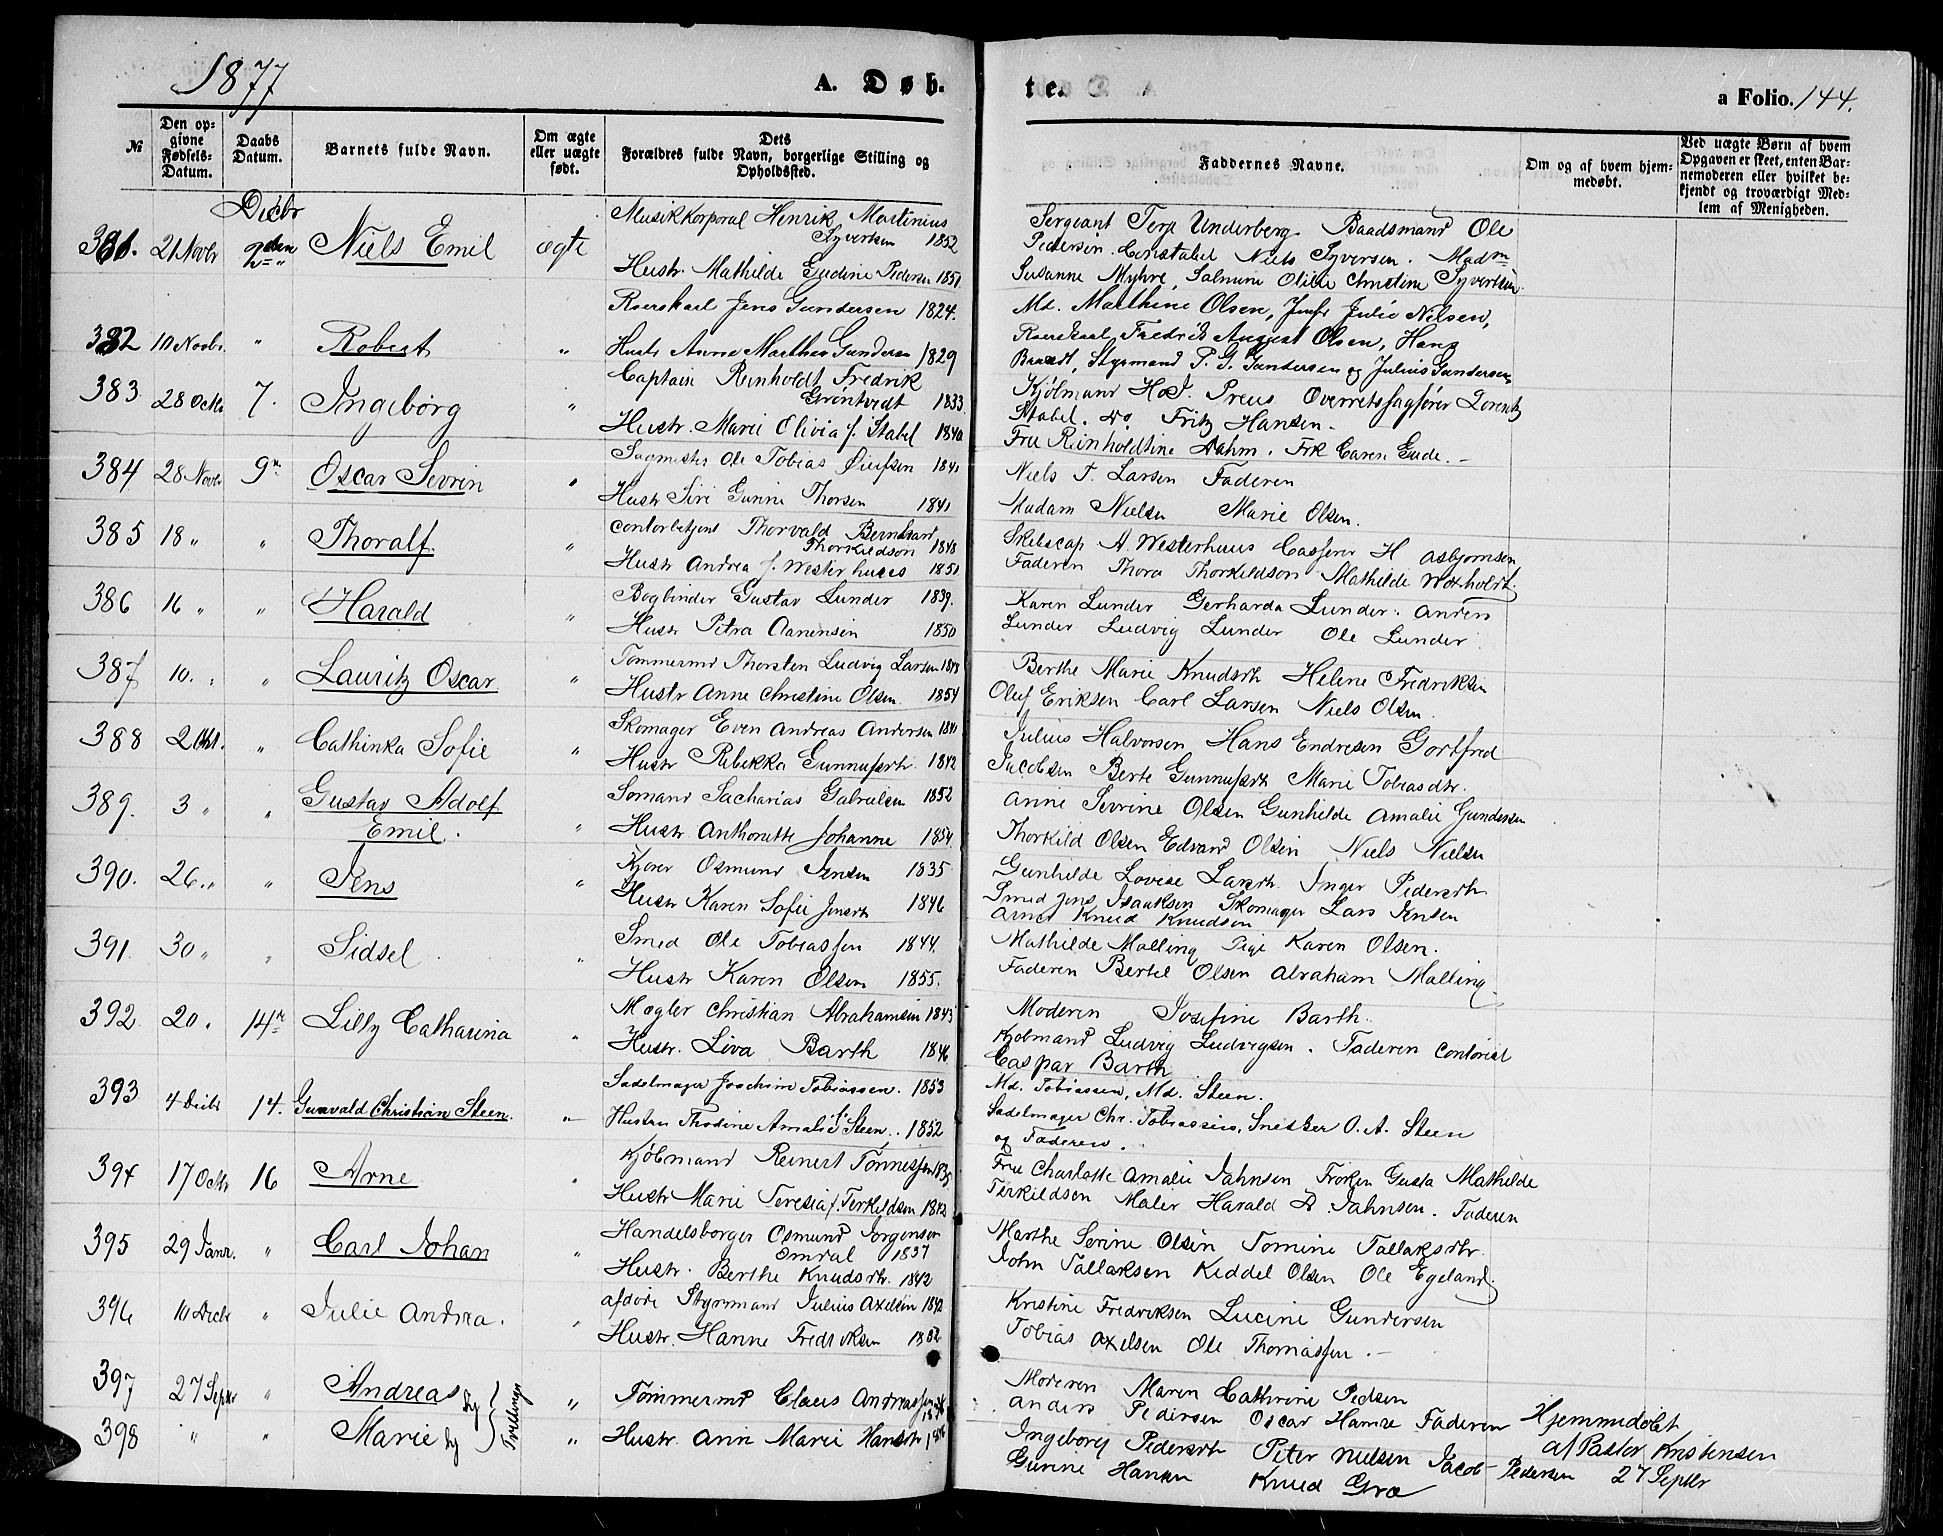 1877
A. Døb.
te.
a Folio. 144.
№
Den opgivne Fødsels-Datum.
Daabs Datum.
Barnets fulde Navn.
Om ægte eller uægte født.
Dets Forældres fulde Navn, borgerlige Stilling og Opholdssted.
Faddernes Navne.
Om og af hvem hjemmedøbt.
Ved uægte Børn af hvem Opgaven er skeet, enten Barnemoderen eller hvilket bekjendt og troværdigt Medlem af Menigheden.
Decbr
381. 21 Novbr 2den Niels Emil ægte Musikkorporal Henrik Martinius Syvertsen 1852
Hustr. Mathilde Gudine Pedersen 1851
Sergeant Terje Underberg. Baadsmand Ole
Pedersen. Constabel Niels Syversen. Madm
Susanne Myhre, Salmine Olilie Christine Syvertsen
382 10 Novbr. " Robert " Roerskarl Jens Gundersen 1824.
Hustr Anne Marthea Gundersen 1829
Md. Marthine Olsen, Jomfr Julie Nilsen,
Roerskarl Fredrik August Olsen, Hans
Brandt, Styrmand P. G. Gundersen og Julius Gundersen
383 28 Octbr. 7. Ingeborg " Captain Reinholdt Fredrik Grøntvedt 1833
Hustr. Marie Olivia f. Stabel 1840
Kjølmand H. J. Preus Overretssagfører Lorentz
Stabel. do Fritz Hansen.
Fru Reinholdtine Dahm. Frk Caren Gude. -
384 28 Novbr 9n Oscar Sevrin " Sagmester Ole Tobias Oiufsen 1841
Hustr Siri Gurine Thorsen 1841
Niels T. Larsen Faderen
Madam Nielsen Marie Olsen.
385 18 " " Thoralf. " Contorbetjent Thorvald Bernhard Thorkildson 1848
Hustr Andrea f. Westerhuus 1851
Skibscap A. Westerhuus Casserer H Asbjornsen
Faderen Thora Thorkildson Mathilde Woxholdt
386 16 " " Harald " Bogbinder Gustav Lunder 1839.
Hustr Petra Aanensen 1850
Karen Lunder Gerharda Lunder. Anders
Lunder Ludvig Lunder Ole Lunder
387 10. " " Lauritz Oscar " Tømmermd Thorsten Ludvig Larsen 1848
Hustr Anne Christine Olsen 1854
Berthe Marie Knudsdtr Helene Fredriksen
Oluf Eriksen Carl Larsen Niels Olsen.
388 2 Oct. " Cathinka Sofie " Skomager Even Andreas Andersen 1841
Hustr Rebekka Gunnufsdtr. 1842
Julius Halvorsen Hans Endresen Gotfred
Jacobsen Berte Gunnufsdtr Marie Tobiasdtr.
389. 3 " " Gustav Adolf Emil. " Sømand Sacharias Gabrielsen 1852
Hustr Anthonette Johanne 1854
Anne Sevrine Olsen Gunhilde Amalie Gundersen
Thorkild Olsen Edvard Olsen Niels Nielsen
390. 26. " " Jens " Kjører Osmund Jensen 1835
Hustr Karen Sofie Jensdtr 1846
Gunhilde Lovise Larsdtr. Inger Pedersdtr
Smed Jens Isaaksen Skomager Lars Jensen
Arnt Knud Knudsen
391. 30 " " Sidsel " Smed Ole Tobiassen 1844.
Hustr Karen Olsen 1855.
Mathilde Malling Pige Karen Olsen.
Faderen Bertel Olsen Abraham Malling
392 20. 14n Lilly Catharina " Mægler Christian Abrahamsen 1843
Hustr. Liva Barth 1846
Moderen Josefine Barth.
Kjøbmand Ludvig Ludvigsen. Faderen Contorist
Caspar Barth
393 4 Decbr 14. Gunvald Christian Steen. " Sadelmager Joachim Tobiassen. 1853
Hustru Thodine Amalie f. Steen. 1852
Md. Tobiassen, Md. Steen.
Sadelmager Chr. Tobiassen, Snedker O. A. Steen
og Faderen.
394 17 Octbr 16 Arne " Kjøbmand Reinert Tønnessen 1835
Hustr Marie Teresia f. Terkildsen 1842
Fru Charlotte Amalie Jahnsen Frøken Gusta Mathilde
Terkildsen Maler Harald D. Jahnsen. Faderen
395 29 Janr. " Carl Johan " Handelsborger Osmund Jørgensen Omdal 1837
Hustr. Berthe Knudsdtr. 1842
Marthe Serine Olsen Tomine Tallaksdtr.
John Tallaksen Keddel Olsen Ole Egeland.
396 10 Decbr " Julie Andrea. " afdøde Styrmand Julius Axelsen 1842
Hustr. Hanne Fredriksen 1852
Kristine Fredriksen Lucine Gundersen
Tobias Axelsen Ole Thomassen. -
397 27 Septbr " Andreas Tvillinger " Tømmermd Claus Andreassen
398 " " Marie " Hustr. Ann Marie Hansdtr
Moderen Maren Cathrine Pedersen
Anders Pedersen Oscar Hamre Faderen
Ingeborg Pedersdtr Peter Nielsen Jacob Pedersen
Gurine Hansen Knud Gra
Hjemmedøbt
af Pastor Kristensen
27 Septbr